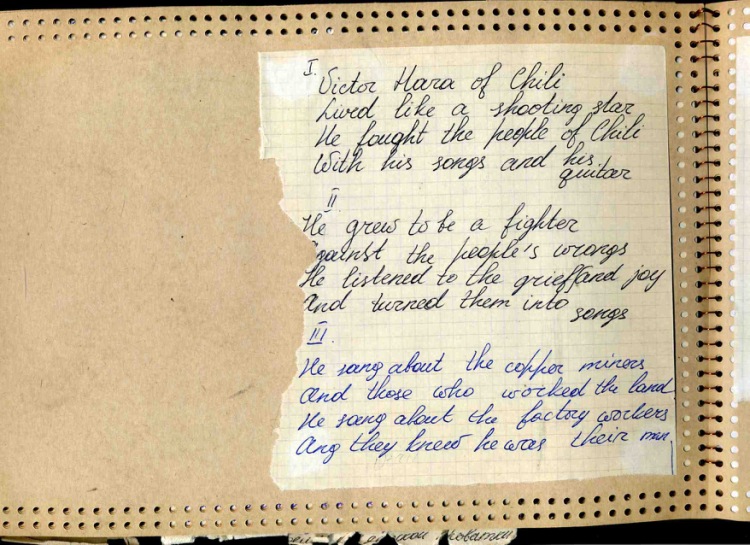 I.
Victor Hara of Chili
Lived like a shooting star
He fought the people of Chili
With his songs and his
guitar
II
He grew to be a fighter
Against the people's wrongs
He listened to the grief and joy
And turned them into
songs
III.
He sang about the copper miners
And those who worked the land
He sang about the factory workers
Ang they knew he was their man